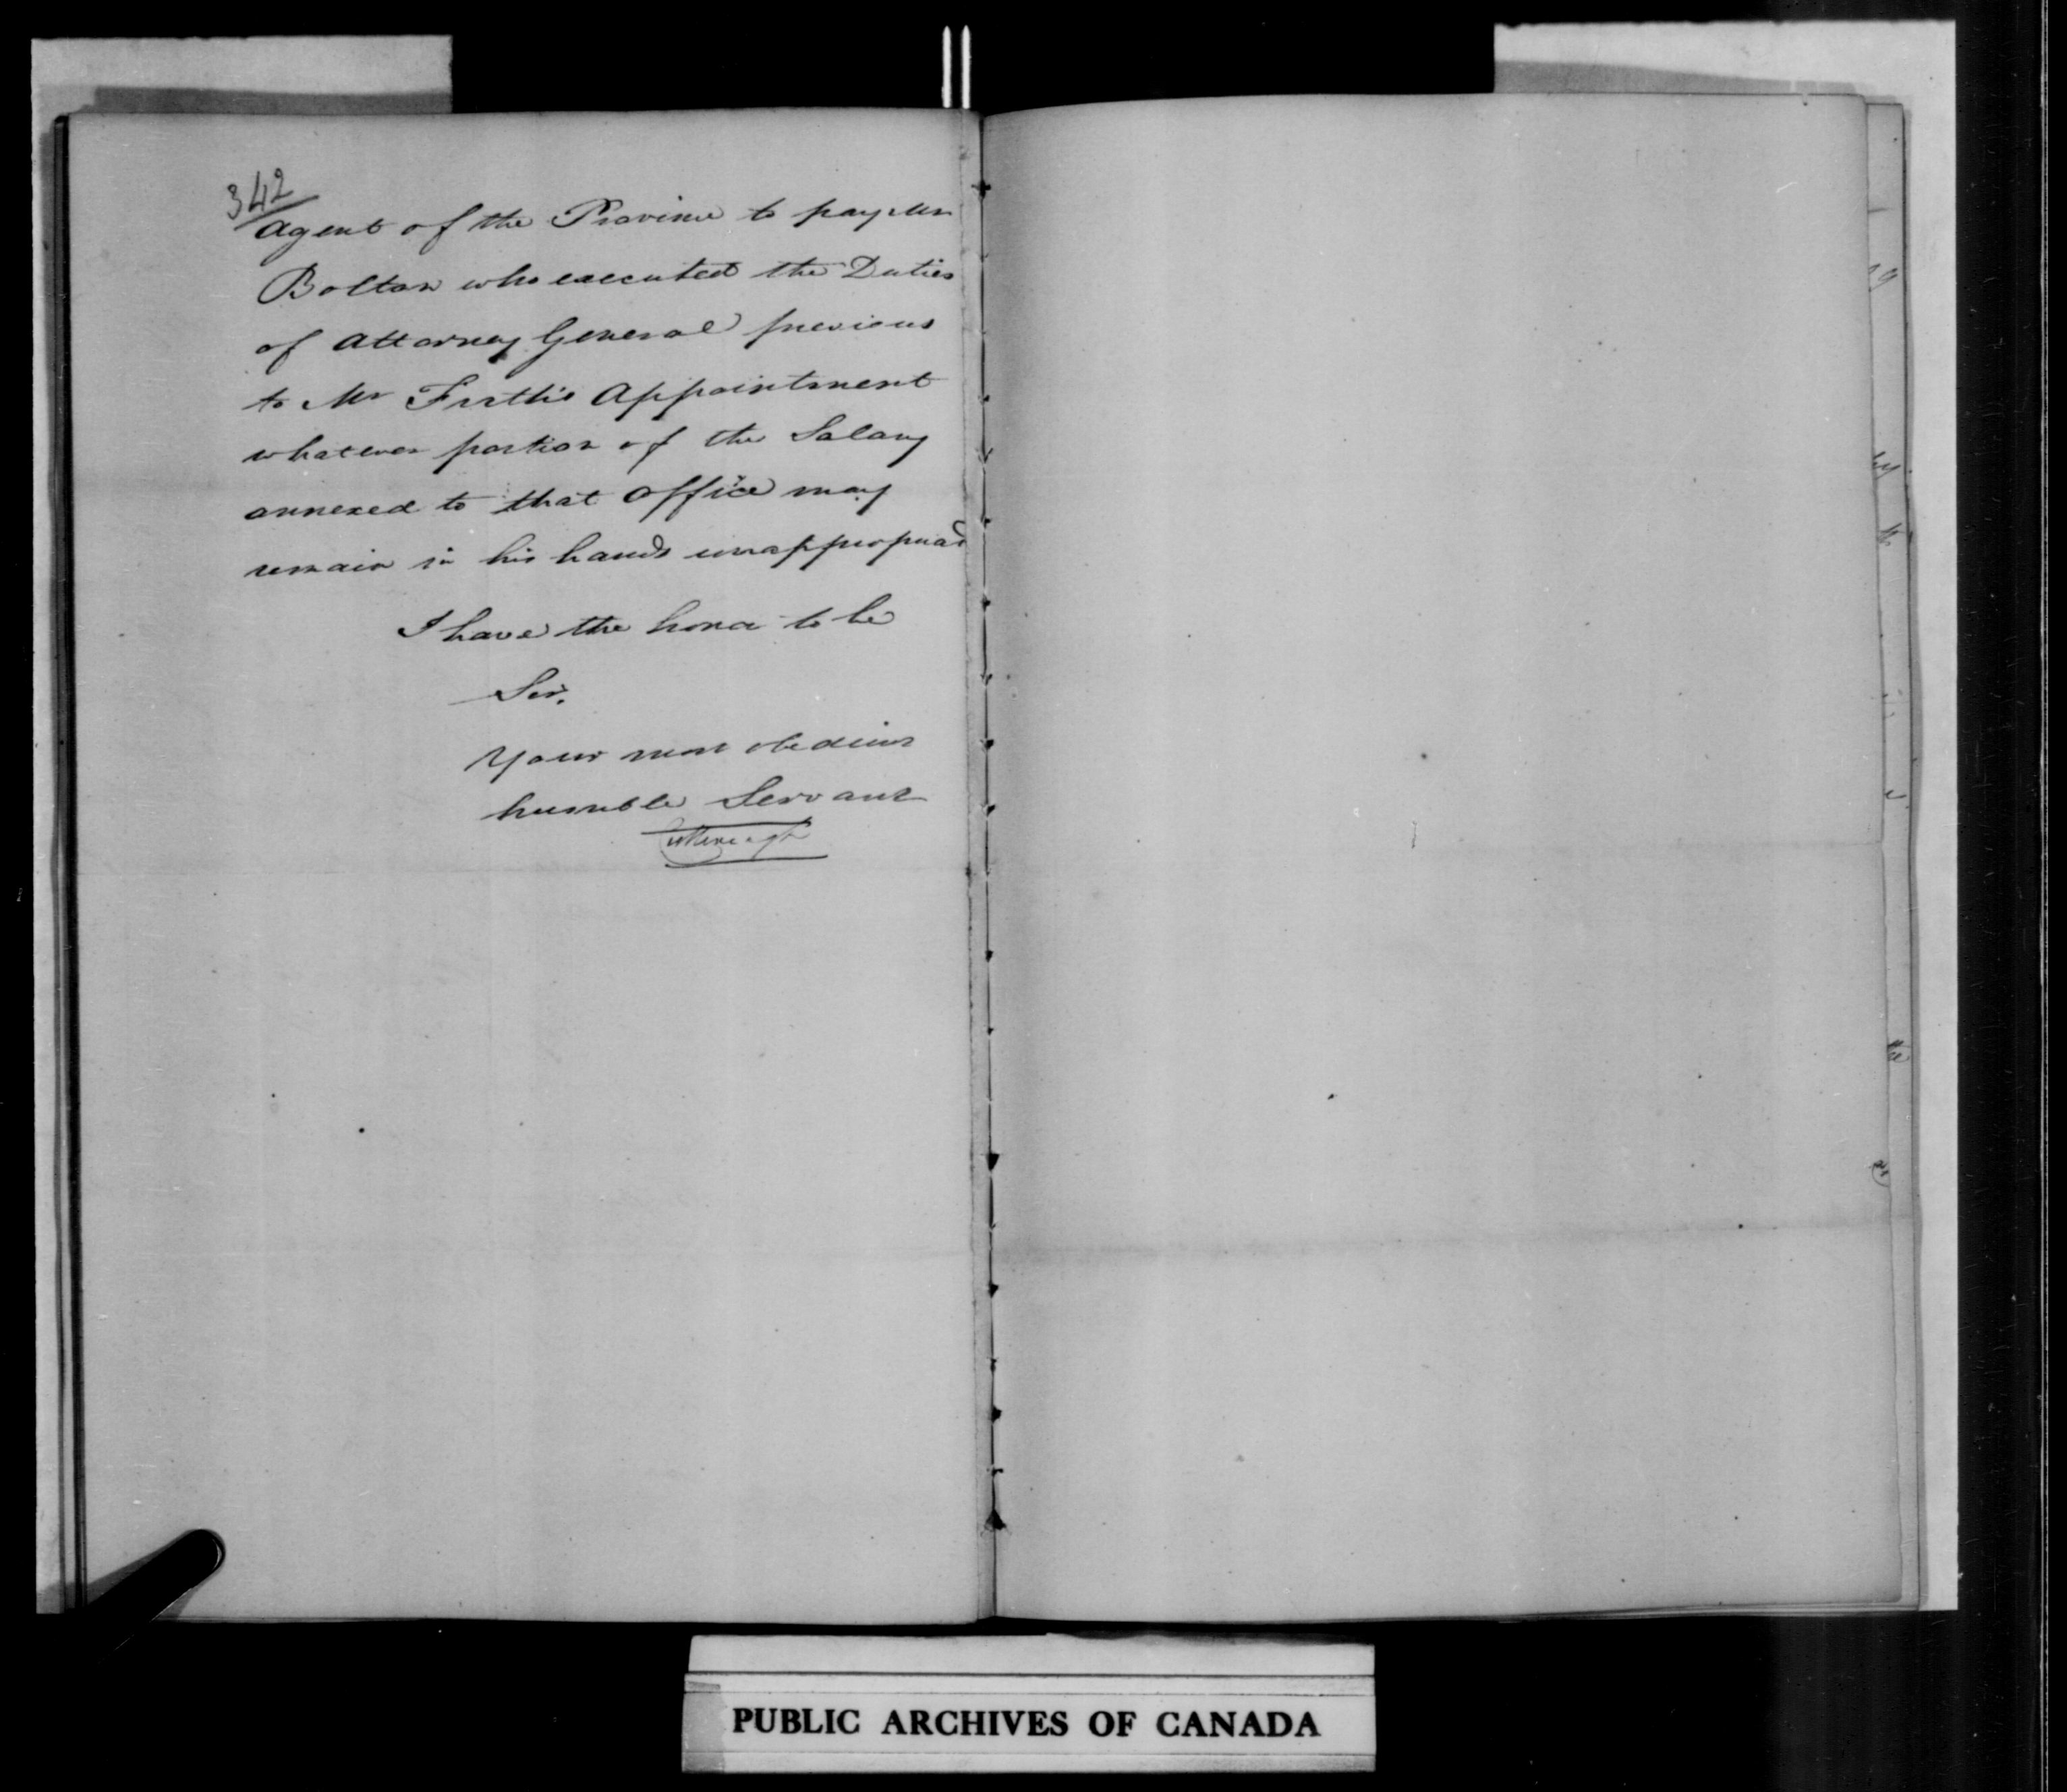 342
Agent of the Province to pay Mr
Bolton who executed the Duties
of Attorney General previous
to Mr Firth's Appointment
whatever portion of the Salary
annexed to that Office may
remain in his hands unappropriad
I have the honor to be
Sir,
Your most obedient
humble Servant
PUBLIC ARCHIVES OF CANADA